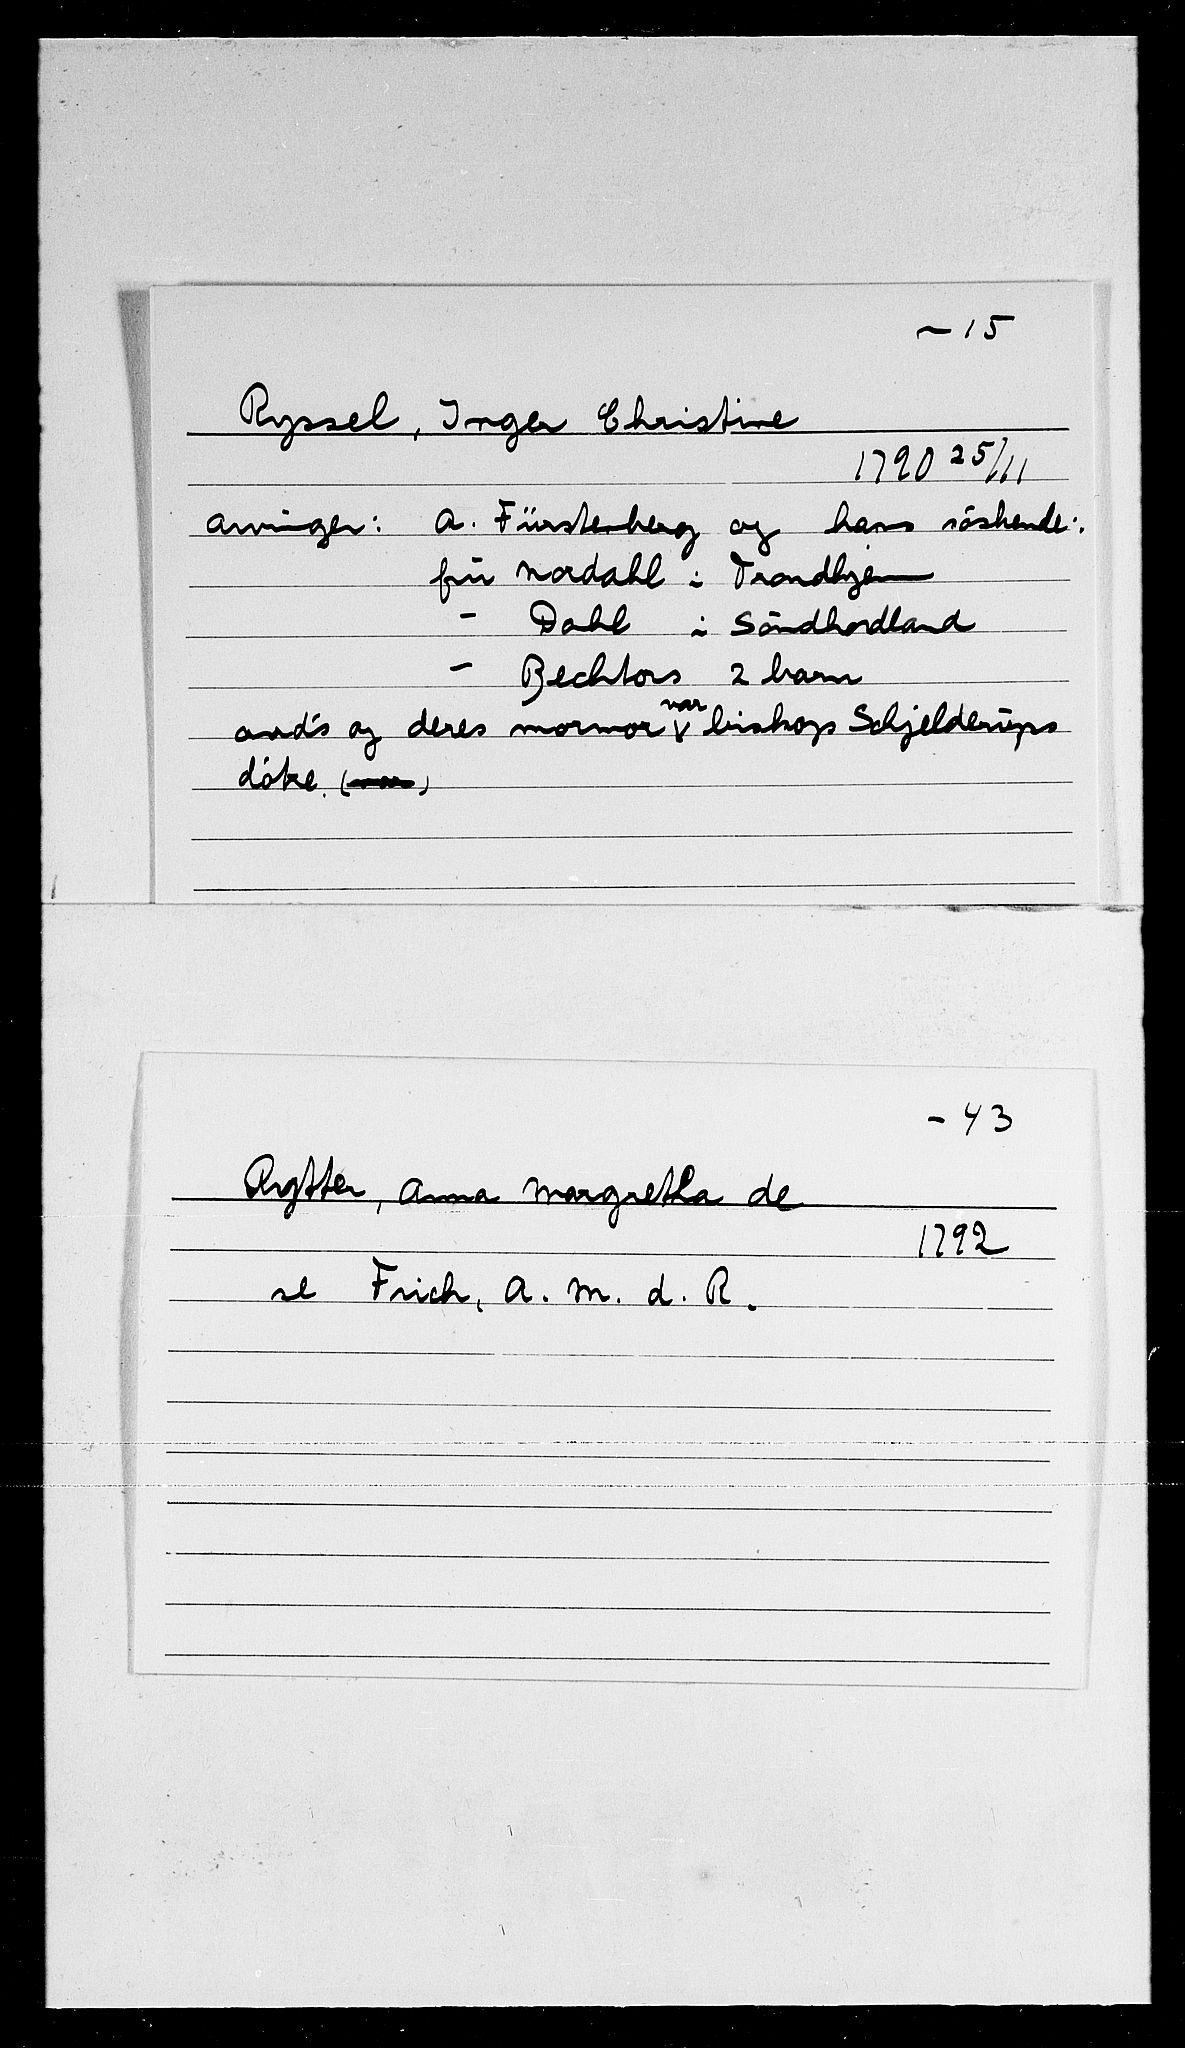 ~ 15
Ryssel, Inger Christine
1790 25/11
arvinger: A. Fürstenberg og hans söskende:
frü Nordahl i Trondhjem
- Dahl i Söndhordland
- Bechtors 2 barn
og deres mormor var biskop Schjelderüps
- 43
Rytter, Anna Margretha de
1792
se Frich, A. M. d. R.